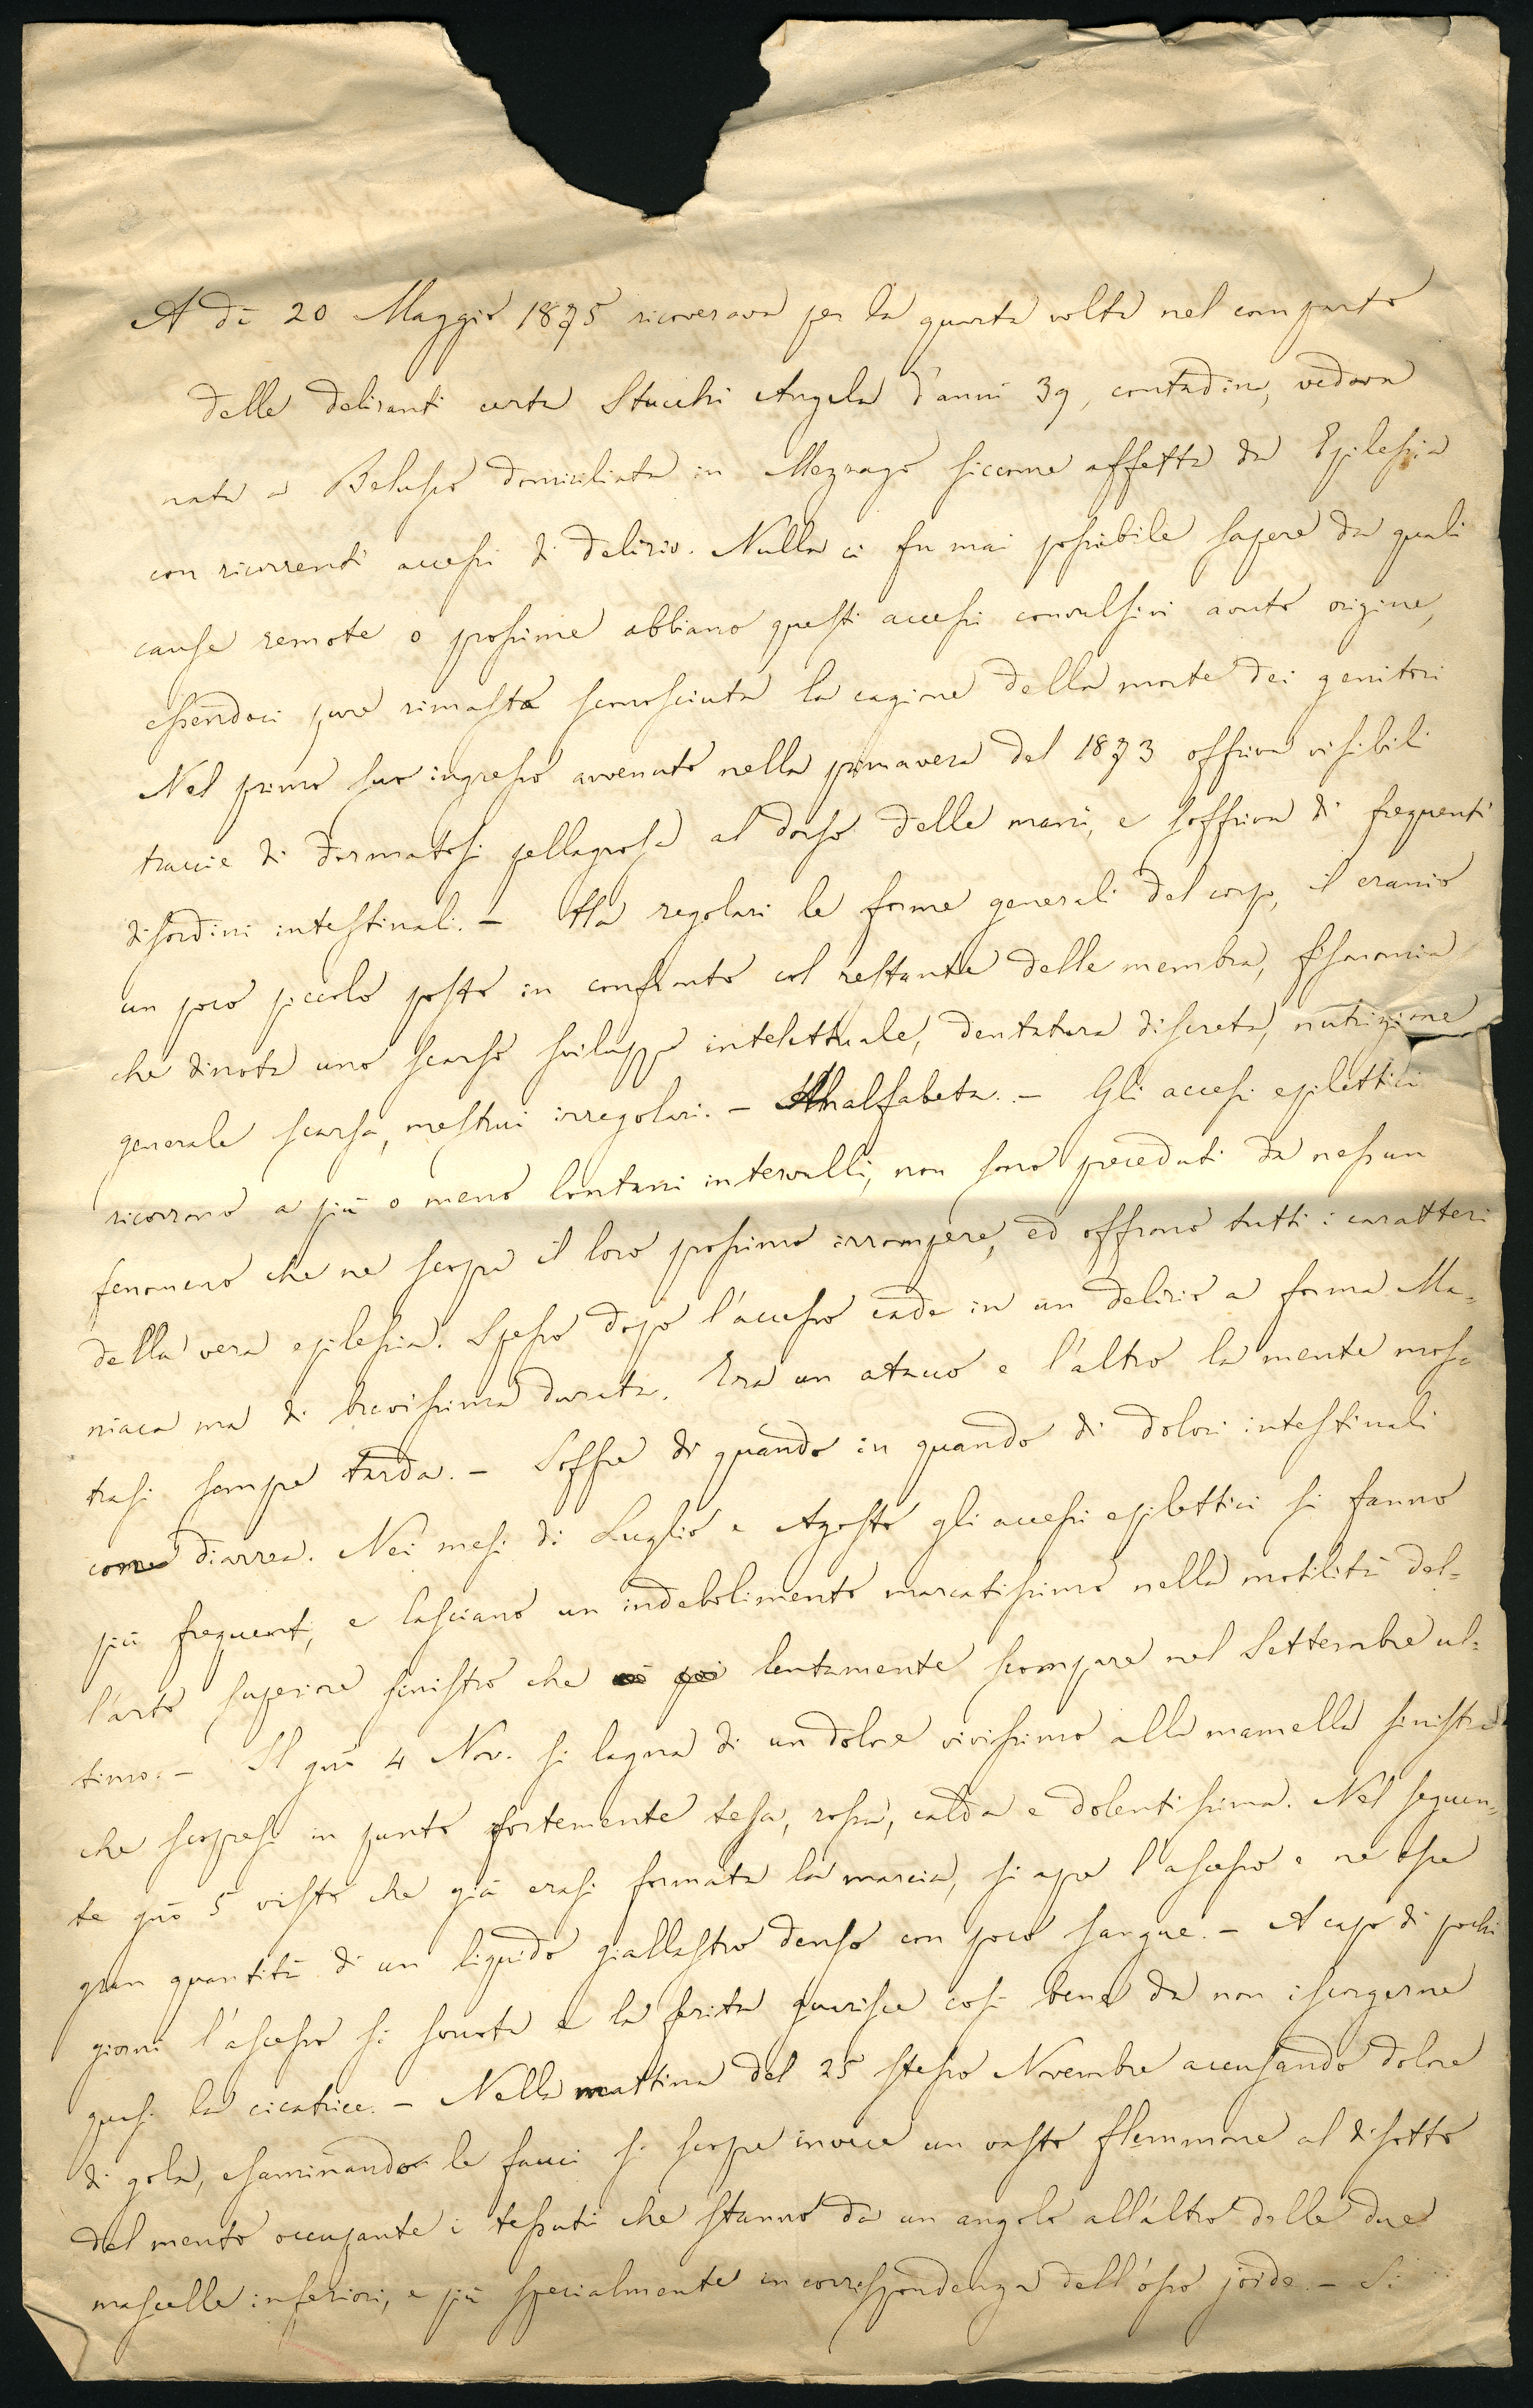 A dì 20 Maggio 1875 ricoverava per la quarta volta nel comparto
delle deliranti certa Stucchi Angela d'anni 39, contadina, vedova
nata a Belusco domiciliata in Mezzago siccome affetta da Epilessia
con ricorrenti accessi di delirio. Nulla ci fu mai possibile sapere da quali
cause remote o prossime abbiano questi accessi convulsivi avuto origine,
essendoci pure rimasta sconosciuta la cagione della morte dei genitori
Nel primo suo ingresso avvenuto nella primavera del 1873 offriva visibili
traccie di dermatosi pellagrosa al dorso delle mani, e soffriva di frequenti
disordini intestinali. - Ha regolari le forme generali del corpo, il cranio
un poco piccolo posto in confronto col restante delle membra, fisonomia
che dinota uno scarso sviluppo intelettuale, dentatura discreta, nutrizione
generale scarsa, mestrui irregolari. - Analfabeta. - Gli accessi epilettici
ricorrono a più o meno lontani intervalli, non sono preceduti da nessun
fenomeno che ne scopra il loro prossimo irrompere, ed offrono tutti i caratteri
della vera epilessia. Spesso dopo l'accesso cade in un delirio a forma Ma=
niaca ma di brevissima durata. Tra un atacco e l'altro la mente mos=
trasi sempre tarda. - Soffre di quando in quando di dolori intestinali
come diarrea. Nei mesi di Luglio e Agosto gli accessi epilettici si fanno
più frequenti, e lasciano un indebolimento marcatissimo nella motilità del=
l'arto superiore sinistro che lentamente scompare nel Settembre ul=
timo. - Il gno 4 Nov. si lagna di un dolore vivissimo alla mamella sinistra
che scopresi in punto fortemente tesa, rossa, calda e dolentissima. Nel seguen=
te gno 5 visto che già erasi formata la marcia, si apre l'ascesso e ne esce
gran quantità di un liquido giallastro denso con poco sangue. - A capo di pochi
giorni l'ascesso si svuota e la ferita guarisce così bene da non iscorgerne
quasi la cicatrice. - Nella mattina del 25 stesso Novembre accusando dolore
di gola, esaminando le fauci si scopre invece un vasto flemmone al disotto
del mento occupante i tessuti che stanno da un angolo all'altro delle due
mascelle inferiori, e più specialmente in corrispondenza dell'osso joide. - Si